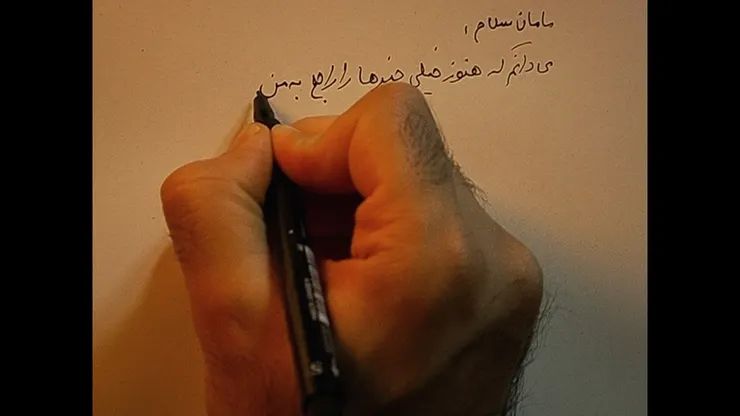 مامان سلام،
می دانم که هنوز خیلی چیزها را راجع به من